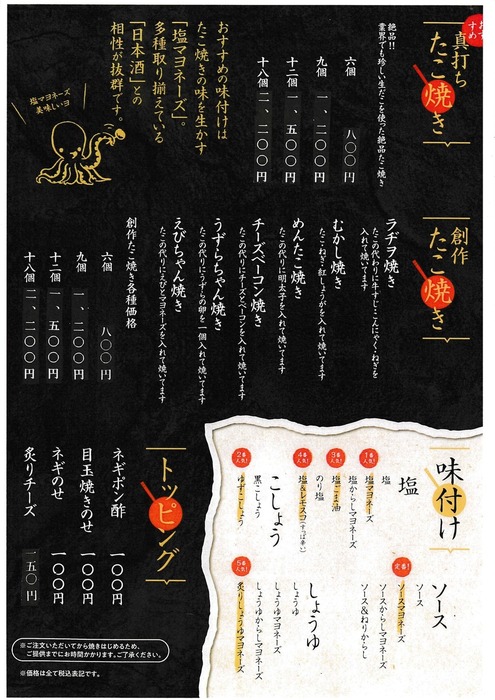 おすすめ
真打ち
たこ焼き
絶品!!
業界でも珍しい生だこを使った絶品たこ焼き
六個 八〇〇円
九個 一、二〇〇円
十二個 一、五〇〇円
十八個 二、二〇〇円
おすすめの味付けは
たこ焼きの味を生かす
「塩マヨネーズ」。
多種取り揃えている
「日本酒」との
相性が抜群です。
塩マヨネーズ
美味しいヨ
創作
たこ焼き
ラヂヲ焼き
たこの代わりに牛すじこんにゃくねぎを
入れて焼いてます
むかし焼き
たこねぎ紅しょうがを入れて焼いてます
めんたこ焼き
たこの代りに明太子を入れて焼いてます
チーズベーコン焼き
たこの代りにチーズとベーコンを入れて焼いてます
うずらちゃん焼き
たこの代りにうずらの卵を一個入れて焼いてます
えびちゃん焼き
たこの代りにえびとマヨネーズを入れて焼いてます
創作たこ焼き各種価格
六個 八〇〇円
九個 一、二〇〇円
十二個 一、五〇〇円
十八個 二、二〇〇円
味付け
ソース
ソース
定番!
ソースマヨネーズ
ソースからしマヨネーズ
ソース&ねりからし
塩
塩
1番人気!
塩マヨネーズ
塩からしマヨネーズ
3番人気!
塩ごま油
のり塩
4番人気!
塩タレモスコ(すっぱ辛い)
しょうゆ
しょうゆ
しょうゆマヨネーズ
しょうゆからしマヨネーズ
5番人気!
炙りしょうゆマヨネーズ
こしょう
黒こしょう
2番人気!
ゆずこしょう
トッピング
ネギポン酢 一〇〇円
目玉焼きのせ 一〇〇円
ネギのせ 一〇〇円
炙りチーズ 一五〇円
※ご注文いただいてから焼きはじめるため、
ご提供までにお時間かかります。ご了承ください。
※価格は全て税込表記です。